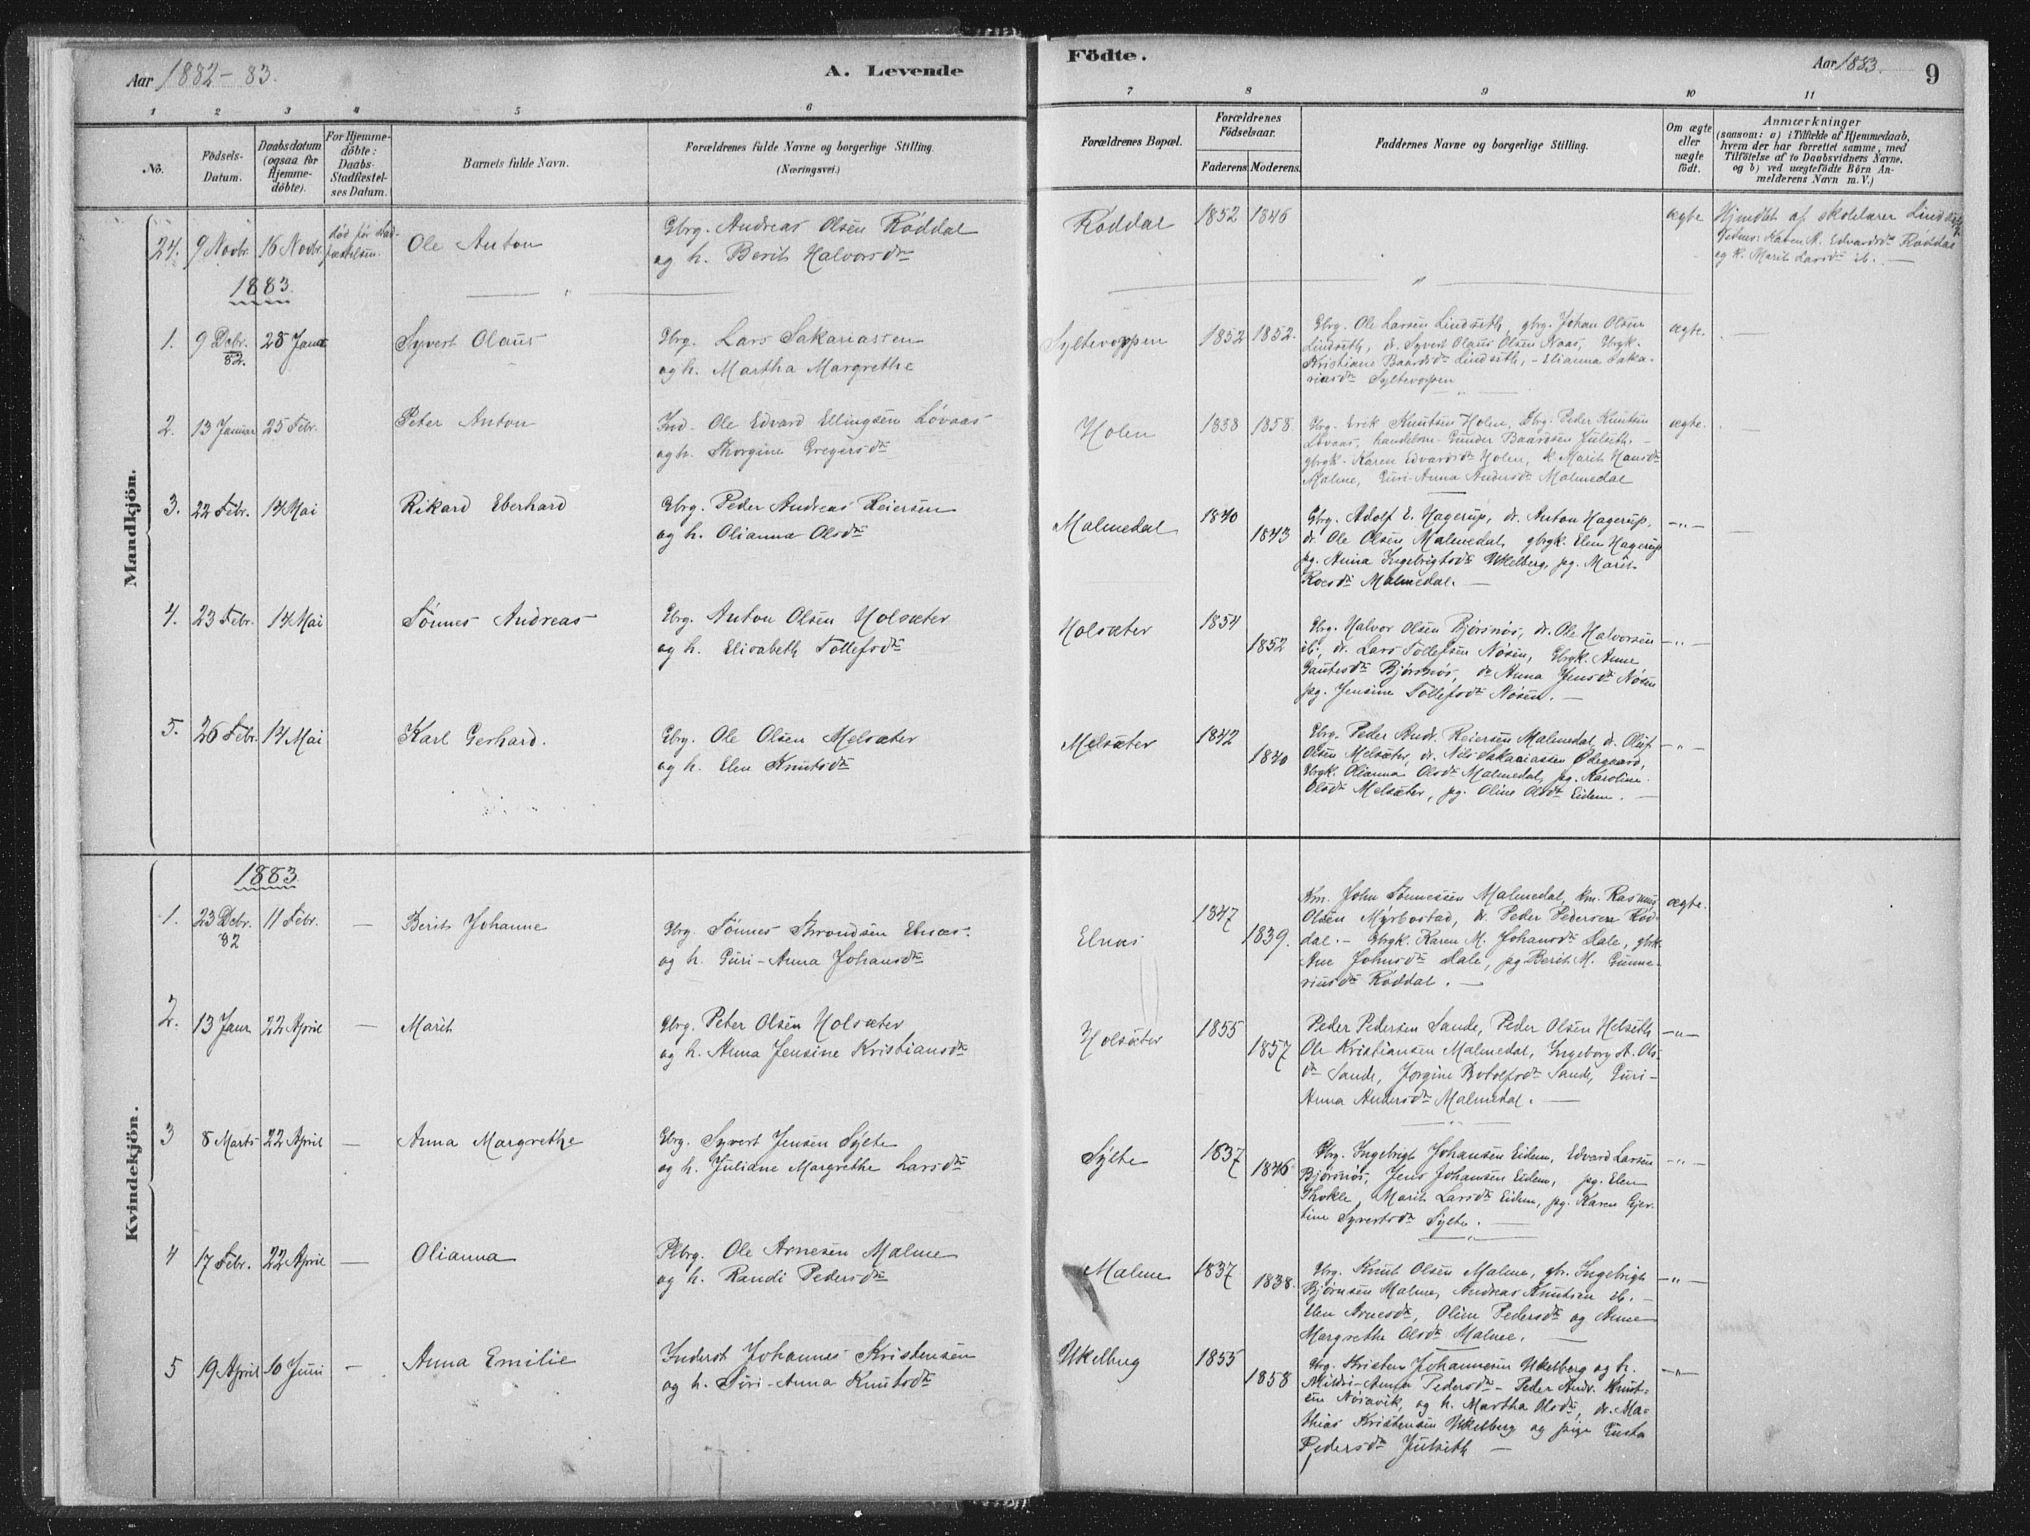 Aar 1882-83. A. Levende
Födte. Aar 1883. 9
1 2 3 4 5 6 7 8 9 10 11
No.
Födsels-
Datum.
Daabsdatum
(ogsaa för
Hjemme-
döbte).
For Hjemme-
döbte:
Daabs-
Stadfæstel-
ses Datum.
Barnets fulde Navn.
Forældrenes fulde Navne og borgerlige Stilling.
(Næringsvei.)
Forældrenes Bopæl.
Forældrenes
Födselsaar.
Faderens. Moderens.
Faddernes Navne og borgerlige Stilling.
Om ægte
eller
uægte
födt.
Anmærkninger
(saasom: a) i Tilfælde af Hjemmedaab,
hvem der har forrettet samme, med
Tilföielse af to Daabsvidners Navne,
og b) ved uægtefödte Börn An-
melderens Navn m. V.)
Mandkjön.
24. 9 Novbr. 16 Novbr. død før stad-
fæstelsen.
Ole Anton
Gbrg. Andreas Olsen Røddal
og h. Berit Halvorsdtr
Røddal 1852 1846
ægte
Hjmdbt af skolelærer Lindseth
Vidner: Karen M. Edvardsdtr Røddal
og k. Marit Larsdtr ib. —
1883.
1. 9 Decbr. 82. 28 Janr
Syvert Olaus
Gbrg. Lars Sakariassen
og h. Martha Margrethe
Syltevoppen 1852 1852.
Gbrg. Ole Larsen Lindseth, gbrg. Johan Olsen
Lindseth, dr. Syvert Olaus Olsen Naas, Gbrgk.
Kristiane Baardsdtr Lindseth, - Elianna Saka-
riasdtr Syltevoppen
ægte. —
2. 13 Januar 25 Febr.
Peter Anton
Ind. Ole Edvard Ellingsen Løvaas
og h. Thorgine Gregersdtr
Holen 1858 1858
Gbrg. Erik Knutsen Holen, Gbrg. Peder Knutsen
Løvaas, handelsm. Gunder Baardsen Julseth. -
gbrgk. Karen Edvardsdtr Holen, k. Marit Hansdtr
Malme, Guri-Anna Andersdtr Malmedal
ægte. —
3. 22 Febr. 14 Mai
Rikard Eberhard
Gbrg. Peder Andreas Reiersen
og h. Olianna Olsdtr
Malmedal 1840 1843
Gbrg. Adolf E. Hagerup, dr. Anton Hagerup.
dr. Ole Olsen Malmedal, gbrgk. Elen Hagerup
pg. Anna Ingebrigtsdtr Ukelberg, pg. Marit
Roesdtr Malmedal. —
-"- —
4. 23 Febr. 14 Mai
Tønnes Andreas
Gbrg. Anton Olsen Holsæter
og h. Elisabeth Tollefsdtr
Holsæter 1854 1852
Gbrg. Halvor Olsen Bjørsnøs, dr. Ole Halvorsen
ib., dr. Lars Tollefsen Nøsen, Gbrgk. Anne
Gautesdtr Bjørsnøs, dr Anna Jensdtr Nøsen
pg. Jensine Tollefsdtr Nøsen. —
-"-
5. 26 Febr. 14 Mai
Karl Gerhard.
Gbrg. Ole Olsen Melsæter
og h. Elen Knutsdtr
Melsæter 1842 1840
Gbrg. Peder Andr. Reiersen Malmedal, dr. Oluf
Olsen Melsæter, dr. Nils Sakariassen Ødegaard,
Gbrgk. Olianna Olsdtr Malmedal, pg. Karoline
Olsdtr Melsæter, pg. Oline Olsdtr Eidem. —
-"-
Kvindekjön.
1883
1. 23 Decbr. 82 11 Febr. —
Berit Johanne
Gbrg. Tønnes Trondsen Elnæs.
og h. Guri-Anna Johansdtr
Elnæs 1847 1839.
Km. John Tønnessen Malmedal, km. Rasmus
Olsen Myrbostad, dr. Peder Pedersen Rød-
dal. - Gbrgk. Karen M. Johansdtr Hale, gbrk.
Ane Johnsdtr Hale, pg Berit M. Gunne-
riusdtr Røddal. —
ægte.
2. 13 Janr. 22 April —
Marit
Gbrg. Peter Olsen Holsæter
og h. Anna Jensine Kristiansdtr
Holsæter 1855 1857
Peder Pedersen Sande, Peder Olsen Helseth
Ole Kristiansen Malmedal, Ingeborg A. Ols-
dtr Sande, Jorgine Botolfsdtr Sande, Guri-
Anna Andersdtr Malmedal. —
-"-
3 8 Marts 22 April —
Anna Margrethe
Gbrg. Syvert Jensen Sylte
og h. Juliane Margrethe Larsdtr
Sylte 1837 1846
Gbrg. Ingebrigt Johansen Eidem, Edvard Larsen
Bjørsnøs, Jens Johansen Eidem, pg. Elen
Thokle, Marit Larsdtr Eidem, pg. Karen Gjer-
tine Syvertsdtr Sylte. —
-"-
4 17 Febr. 22 April —
Olianna
Plbrg. Ole Arnesen Malme
og h. Randi Pedersdtr
Malme 1837 1838.
Gbrg. Knut Olsen Malme, gbr. Ingebrigt
Bjørnsen Malme, Andreas Knutsen ib. -
Elen Arnesdtr, Oline Pedersdtr og Anne
Margrethe Olsdtr Malme. —
-"-
5 19 April 10 Juni —
Anna Emilie
Inderst Johannes Kristensen
og h. Siri-Anna Knutsdtr
Ukelberg 1855 1858
Gbrg. Kristen Johannesen Ukelberg og h.
Mildri-Anna Pedersdtr - Peder Andr. Knut-
sen Nøsavik, og h. Martha Olsdtr, dr. Ma-
thias Kristensen Ukelberg og pige Gusta
Pedersdtr Julseth —
-"-